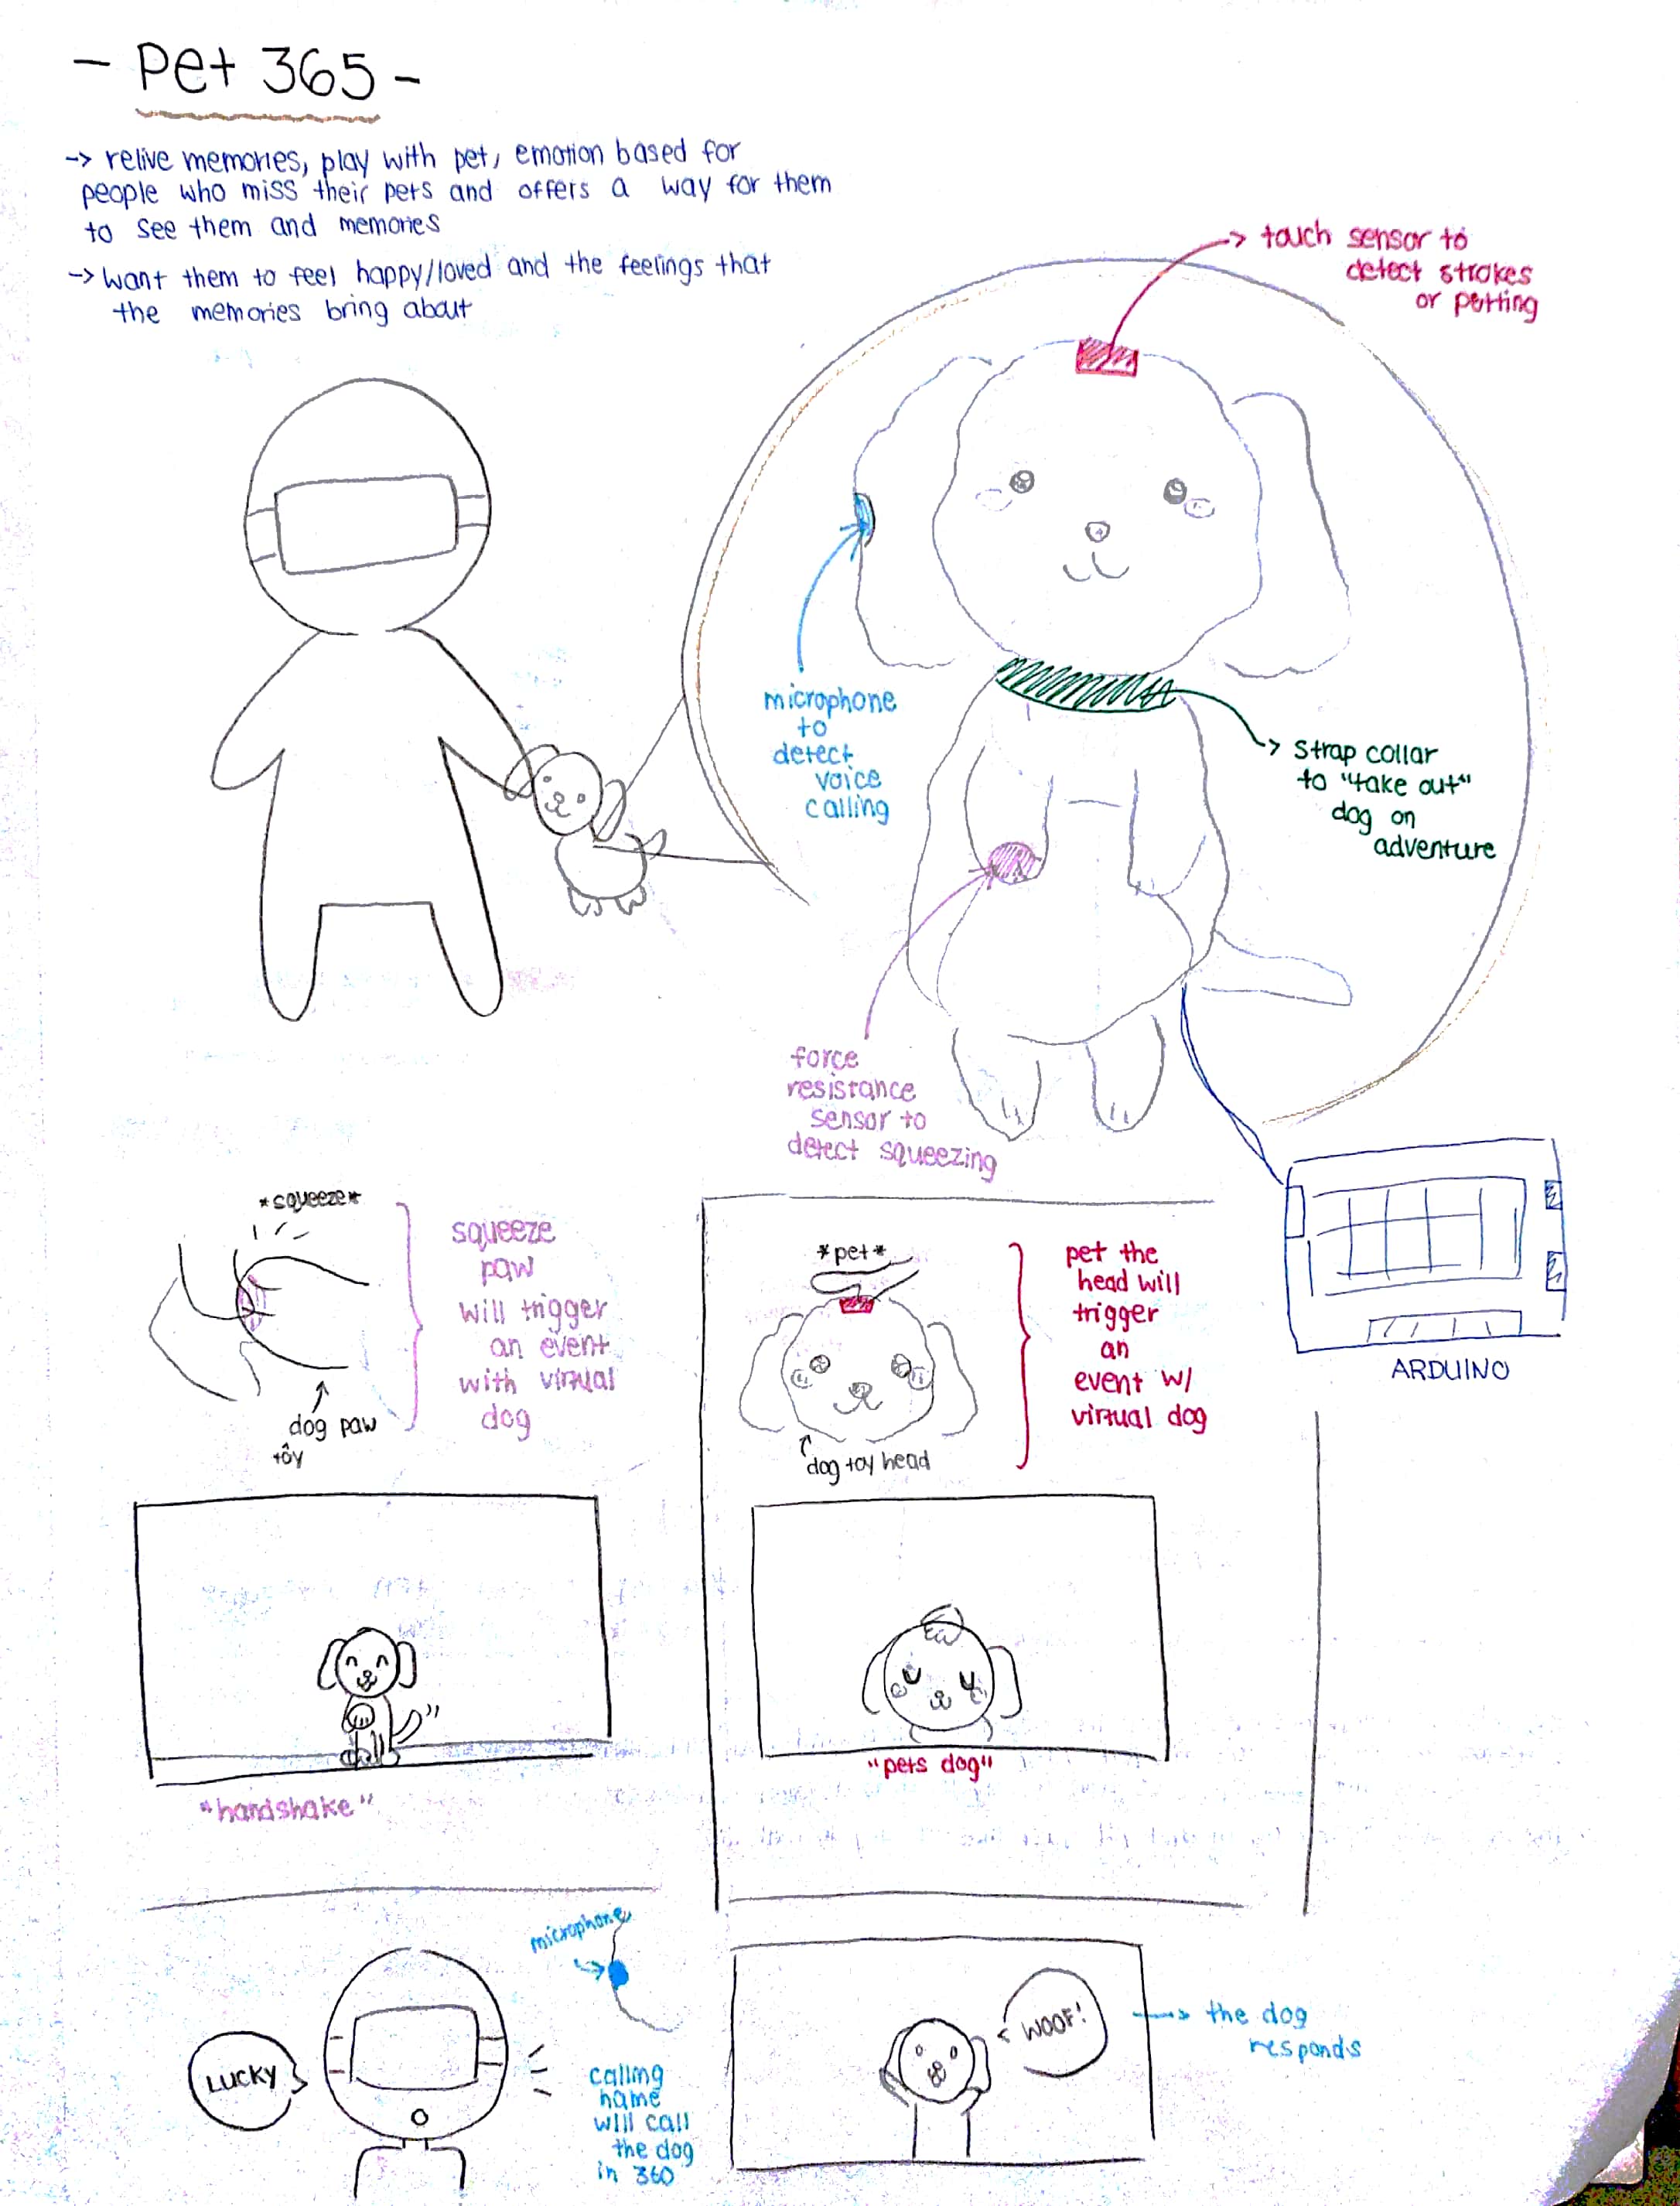 - Pet 365 -
-> relive memories, play with pet, emotion based for
people who miss their pets and offers a way for them
to see them and memories
-> want them to feel happy/loved and the feelings that
the memories bring about
-> touch sensor to
detect strokes
or petting
microphone
to
detect
voice
calling
-> strap collar
to "take out"
dog on
adventure
force
resistance
sensor to
detect squeezing
ARDUINO
*squeeze*
squeeze
paw
will trigger
an event
with virtual
dog
dog paw
toy
*pet*
pet the
head will
trigger
an
event w/
virtual dog
dog toy head
"handshake"
"pets dog"
microphone
LUCKY
calling
name
will call
the dog
in 360
WOOF!
-> the dog
responds